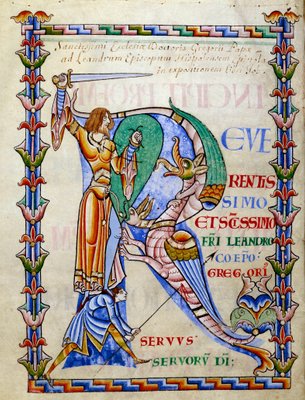 Sanctissimi Ecclesiæ Doctoris Gregorii Papæ
ad Leandrum Episcopum Hispalensem
in expositionem
REVE
RENTIS
SIMO
ET SCISSIMO
FRI LEANDRO
COEPO
GREGORI
SERVVS
SERVORV DI: